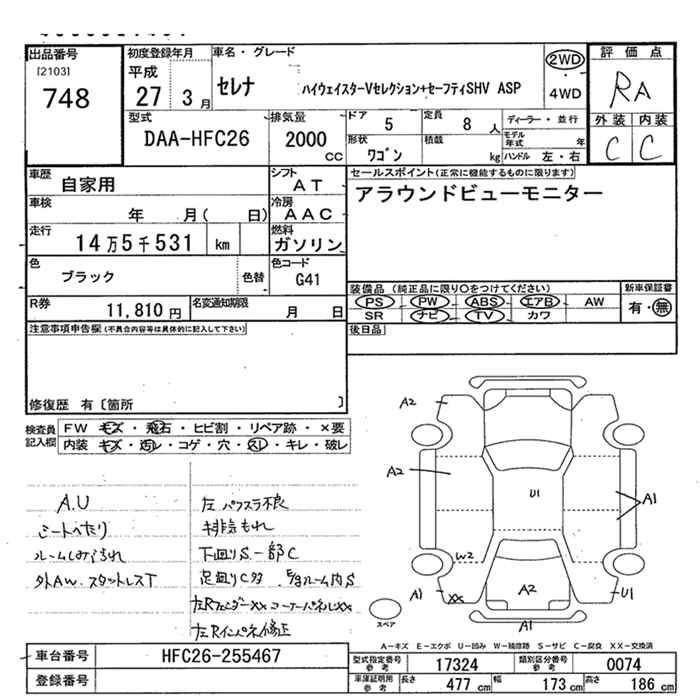 出品番号
[2103]
748
初度登録年月
平成
27 3月
車名・グレード
セレナ ハイウェイスターVセレクション+セーフティSHV ASP
2WD
・
4WD
評価点
RA
外装 内装
C C
型式
DAA-HFC26
排気量
2000 cc
ドア
5
定員
8 人
形状
ワゴン
積載
kg
ディーラー・並行
モデル年式 年
ハンドル 左・右
車歴
自家用
シフト
AT
車検
年 月( 日)
冷房
AAC
走行
14万5千531 km
燃料
ガソリン
色
ブラック
色替
色コード
G41
R券
11,810 円
名変通知期限
月 日
セールスポイント(正常に機能するものに限ります)
アラウンドビューモニター
装備品 (純正品に限り○をつけてください)
PS PW ABS エアB AW
SR ナビ TV カワ
新車保証書
有・無
後日品
注意事項申告欄(不具合内容等は具体的に記入して下さい)
修復歴 有〔箇所 〕
検査員記入欄
FW キズ・飛石・ヒビ割・リペア跡・×要
内装 キズ・汚レ・コゲ・穴・スレ・キレ・破レ
A.U
シートへたり
外AW.スタットレスT
左パワスラ不良
排気もれ
下回りS一部C
足回りC多
左Rフェンダーxx コーナーパネルxx
左Rインパネ修正
A2
A2
U1
A1
W2
A1
XX
A2
U1
A1
スペア
A-キズ E-エクボ U-凹み W-補修跡 S-サビ C-腐食 XX-交換済
車台番号
HFC26-255467
登録番号
型式指定番号 参考
17324
類別区分番号 参考
0074
車庫証明用 参考
長さ 477 cm
幅 173 cm
高さ 186 cm